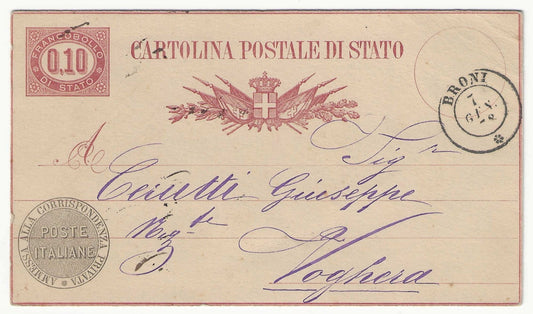 FRANCOBOLLO
0,10
DI STATO
CARTOLINA POSTALE DI STATO
BRONI
7
GEN.
A
Sigr
Cerutti Giuseppe
a
Voghera
AMMESSA ALLA CORRISPONDENZA PRIVATA
POSTE
ITALIANE